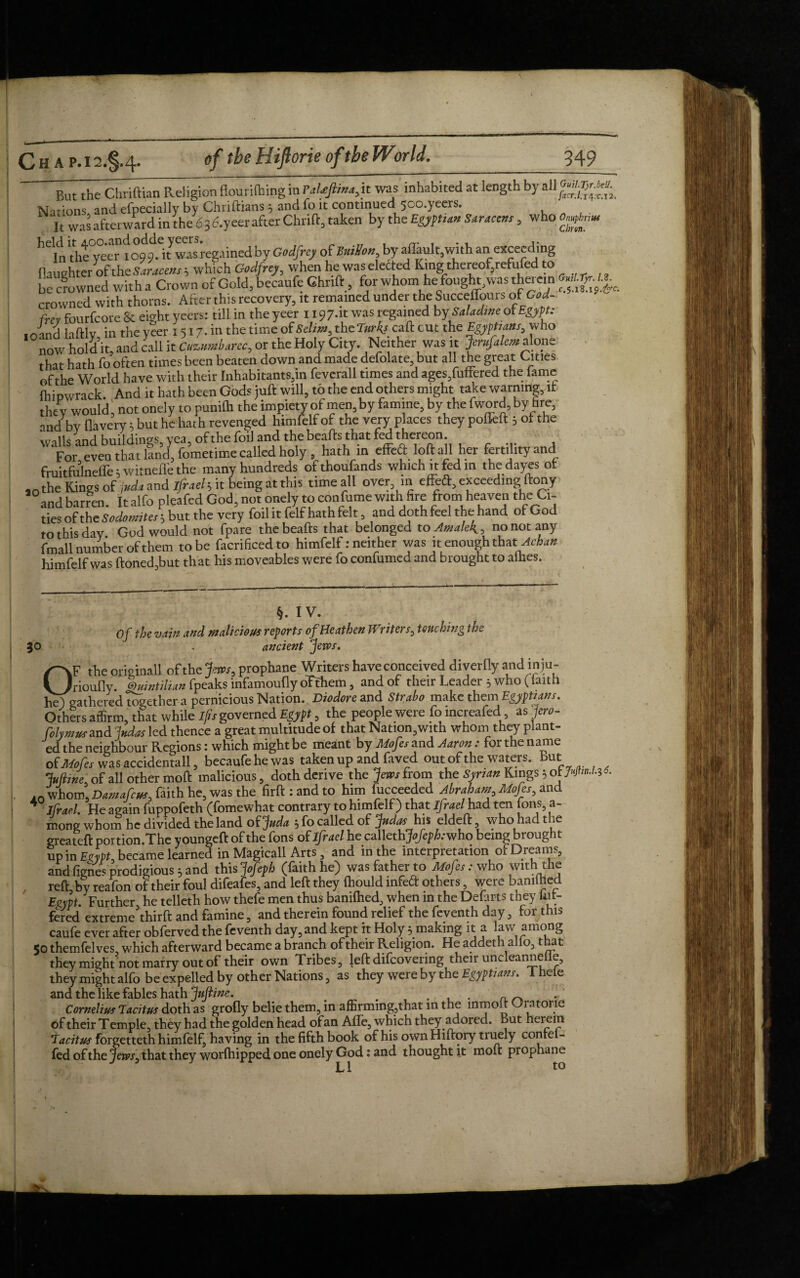 CHAP.12.§.4. of the Historie of the World. 349
But the Christian Religion flourishing in Palæstina, it was inhabited at length by all Guil.Tyr.bell.
Nations, and especially by Christians; and so it continued 500.yeers. sacr.l.14.c.12.
It was afterward in the 636.yeer after Christ, taken by the Egyptian Saracens, who Onuphrius
held it 400.and odde yeers. Chron.
In the yeer 1099. it was regained by Godfrey of Buillon, by assault, with an exceeding
slaughter of the Saracens; which Godfrey, when he was elected King thereof, refused to
be crowned with a Crown of Gold, because Christ, for whom he fought, was therein Guil.Tyr.l.8.
crowned with thorns. After this recovery, it remained under the Successours of God- c.5.18.19.&c.
frey fourscore & eight yeers: till in the yeer 1197.it was regained by Saladine of Egypt:
10 and lastly, in the yeer 1517. in the time of Selim, the Turks cast out the Egyptians, who
now hold it, and call it Cuzumbarec, or the Holy City. Neither was it Jerusalem alone
that hath so often times been beaten down and made desolate, but all the great Cities
of the World have with their Inhabitants,in severall times and ages,suffered the same
shipwrack. And it hath been Gods just will, to the end others might take warning, if
they would, not onely to punish the impiety of men, by famine, by the sword, by fire,
and by slavery; but he hath revenged himself of the very places they possest; of the
walls and buildings, yea, of the soil and the beasts that fed thereon.
For, even that land, sometime called holy, hath in effect lost all her fertility and
fruitfulnesse; witnesse the many hundreds of thousands which it fed in the dayes of
20 the Kings of Juda and Israel; it being at this time all over, in effect, exceeding stony
and barren. It also pleased God, not onely to consume with fire from heaven the Ci-
ties of the Sodomites; but the very soil it self hath felt, and doth feel the hand of God
to this day. God would not spare the beasts that belonged to Amalek, no not any
small number of them to be sacrificed to himself: neither was it enough that Achan
himself was stoned,but that his moveables were so consumed and brought to ashes.
§. IV.
Of the vain and malicious reports of Heathen Writers, touching the
30 ancient Jews.
OF the originall of the Jews, prophane Writers have conceived diversly and inju-
riously. Quintilian speaks infamously of them, and of their Leader; who (saith
he) gathered together a pernicious Nation. Diodore and Strabo make them Egyptians.
Others affirm, that while Isis governed Egypt, the people were so increased, as Jero-
solymus and Judas led thence a great multitude of that Nation,with whom they plant-
ed the neighbour Regions: which might be meant by Moses and Aaron: for the name
of Moses was accidentall, because he was taken up and saved out of the waters. But
Justine, of all other most malicious, doth derive the Jews from the Syrian Kings; of Justin.l.36.
40 whom, Damascus, saith he, was the first: and to him succeeded Abraham, Moses, and
Israel. He again supposeth (somewhat contrary to himself) that Israel had ten sons, a-
mong whom he divided the land of Juda; so called of Judas his eldest, who had the
greatest portion.The youngest of the sons of Israel he calleth Joseph:who being brought
up in Egypt, became learned in Magicall Arts, and in the interpretation of Dreams,
and signes prodigious; and this Joseph (saith he) was father to Moses: who with the
rest,by reason of their foul diseases, and lest they should infect others, were banished
Egypt. Further, he telleth how these men thus banished, when in the Desarts they suf-
fered extreme thirst and famine, and therein found relief the seventh day, for this
cause ever after observed the seventh day, and kept it Holy; making it a law among
50 themselves, which afterward became a branch of their Religion. He addeth also, that
they might not marry out of their own Tribes, lest discovering their uncleannesse,
they might also be expelled by other Nations, as they were by the Egyptians. These
and the like fables hath Justine.
Cornelius Tacitus doth as grosly belie them, in affirming,that in the inmost Oratorie
of their Temple, they had the golden head of an Asse, which they adored. But herein
Tacitus forgetteth himself, having in the fifth book of his own History truely confes-
sed of the Jews, that they worshipped one onely God: and thought it most prophane
Ll to